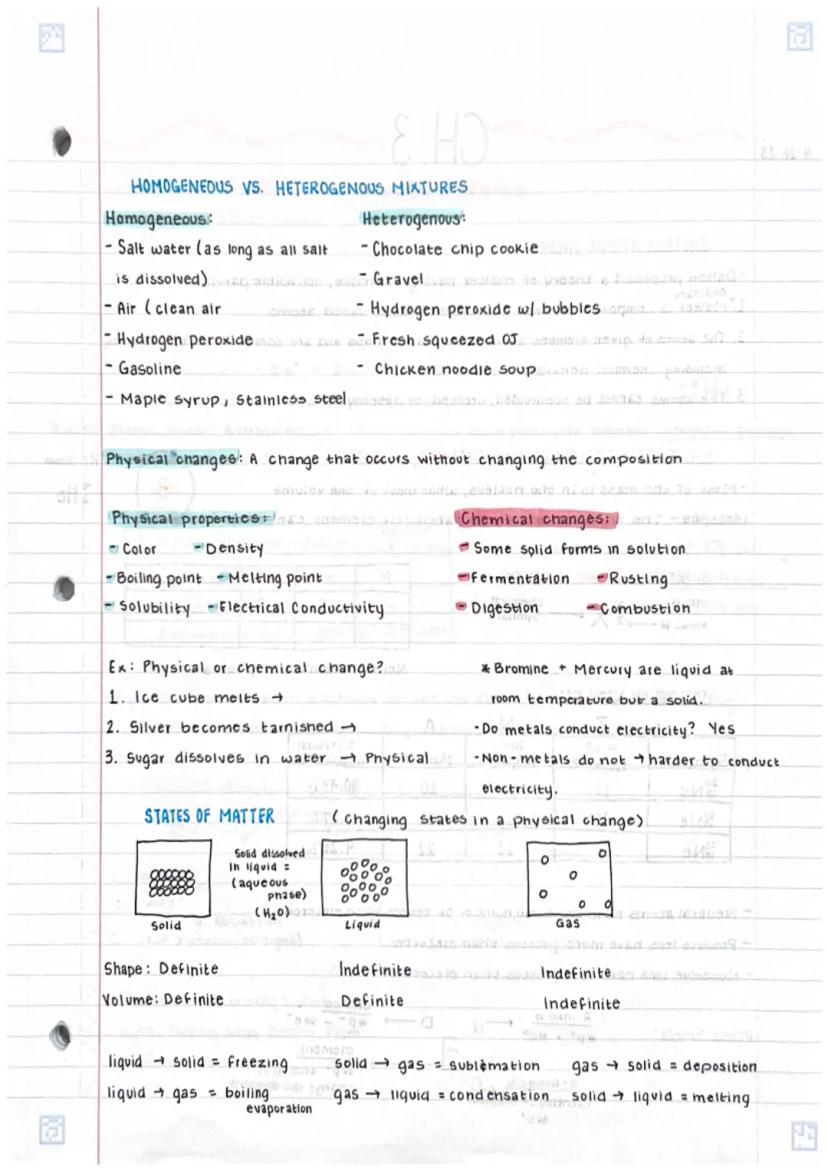 HOMOGENEOUS VS. HETEROGENOUS MIXTURES
Homogeneous: Heterogenous:
- Salt water (as long as all salt - Chocolate chip cookie
is dissolved) - Gravel
- Air (clean air - Hydrogen peroxide w/ bubbles
- Hydrogen peroxide - Fresh squeezed OJ
- Gasoline - Chicken noodle soup
- Maple syrup, Stainless steel
Physical changes: A change that occurs without changing the composition
Physical properties: Chemical changes:
- Color - Density - Some solid forms in solution
- Boiling point - Melting point - Fermentation - Rusting
- Solubility - Electrical Conductivity - Digestion - Combustion
Ex: Physical or chemical change? * Bromine + Mercury are liquid at
1. Ice cube melts → room temperature but a solid.
2. Silver becomes tarnished → - Do metals conduct electricity? Yes
3. Sugar dissolves in water → Physical - Non-metals do not → harder to conduct
electricity.
STATES OF MATTER (Changing states in a physical change)
Solid dissolved
in liquid =
(aqueous
phase)
(H₂O)
Solid Liquid Gas
Shape: Definite Indefinite Indefinite
Volume: Definite Definite Indefinite
liquid → solid = freezing solid → gas = sublimation gas → solid = deposition
liquid → gas = boiling gas → liquid = condensation solid → liquid = melting
evaporation